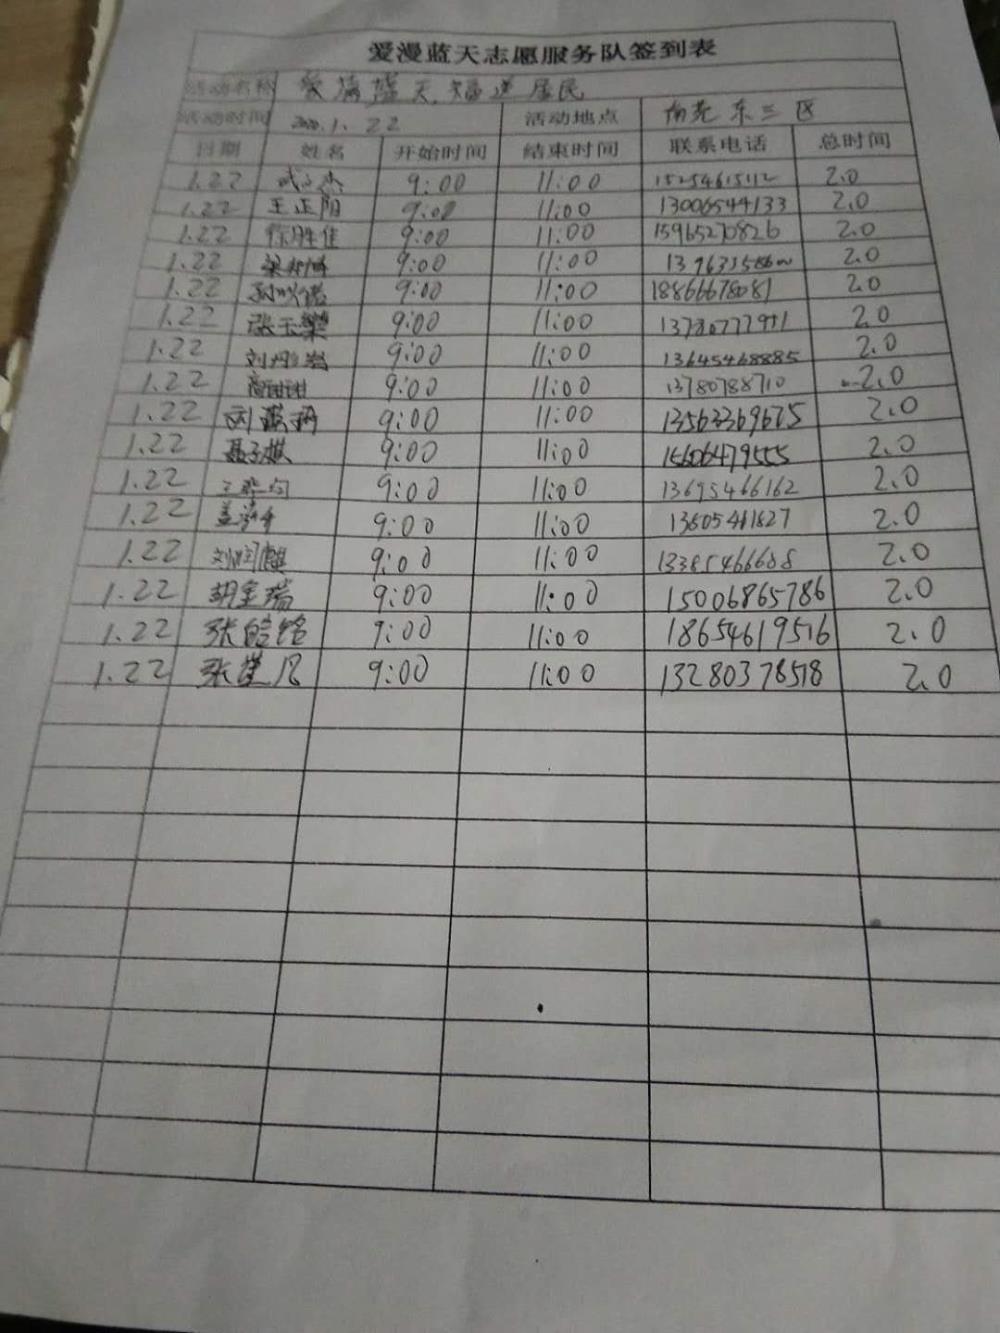 爱漫蓝天志愿服务队签到表
活动名称 爱满蓝天,福送居民
活动时间 2020.1.22 活动地点 东三区
日期 姓名 开始时间 结束时间 联系电话 总时间
1.22 9:00 11:00 2.0
1.22 王正阳 9:00 11:00 13006544133 2.0
1.22 徐胜佳 9:00 11:00 15965270826 2.0
1.22 9:00 11:00 2.0
1.22 9:00 11:00 18866678081 2.0
1.22 张玉樂 9:00 11:00 2.0
1.22 9:00 11:00 13645468885 2.0
1.22 9:00 11:00 13780788710 2.0
1.22 9:00 11:00 13563369675 2.0
1.22 聂子棋 9:00 11:00 15606479555 2.0
1.22 9:00 11:00 13695466162 2.0
1.22 9:00 11:00 2.0
1.22 刘润麒 9:00 11:00 2.0
1.22 胡金瑞 9:00 11:00 15006865786 2.0
1.22 张皓铭 9:00 11:00 18654619516 2.0
1.22 9:00 11:00 13280378518 2.0